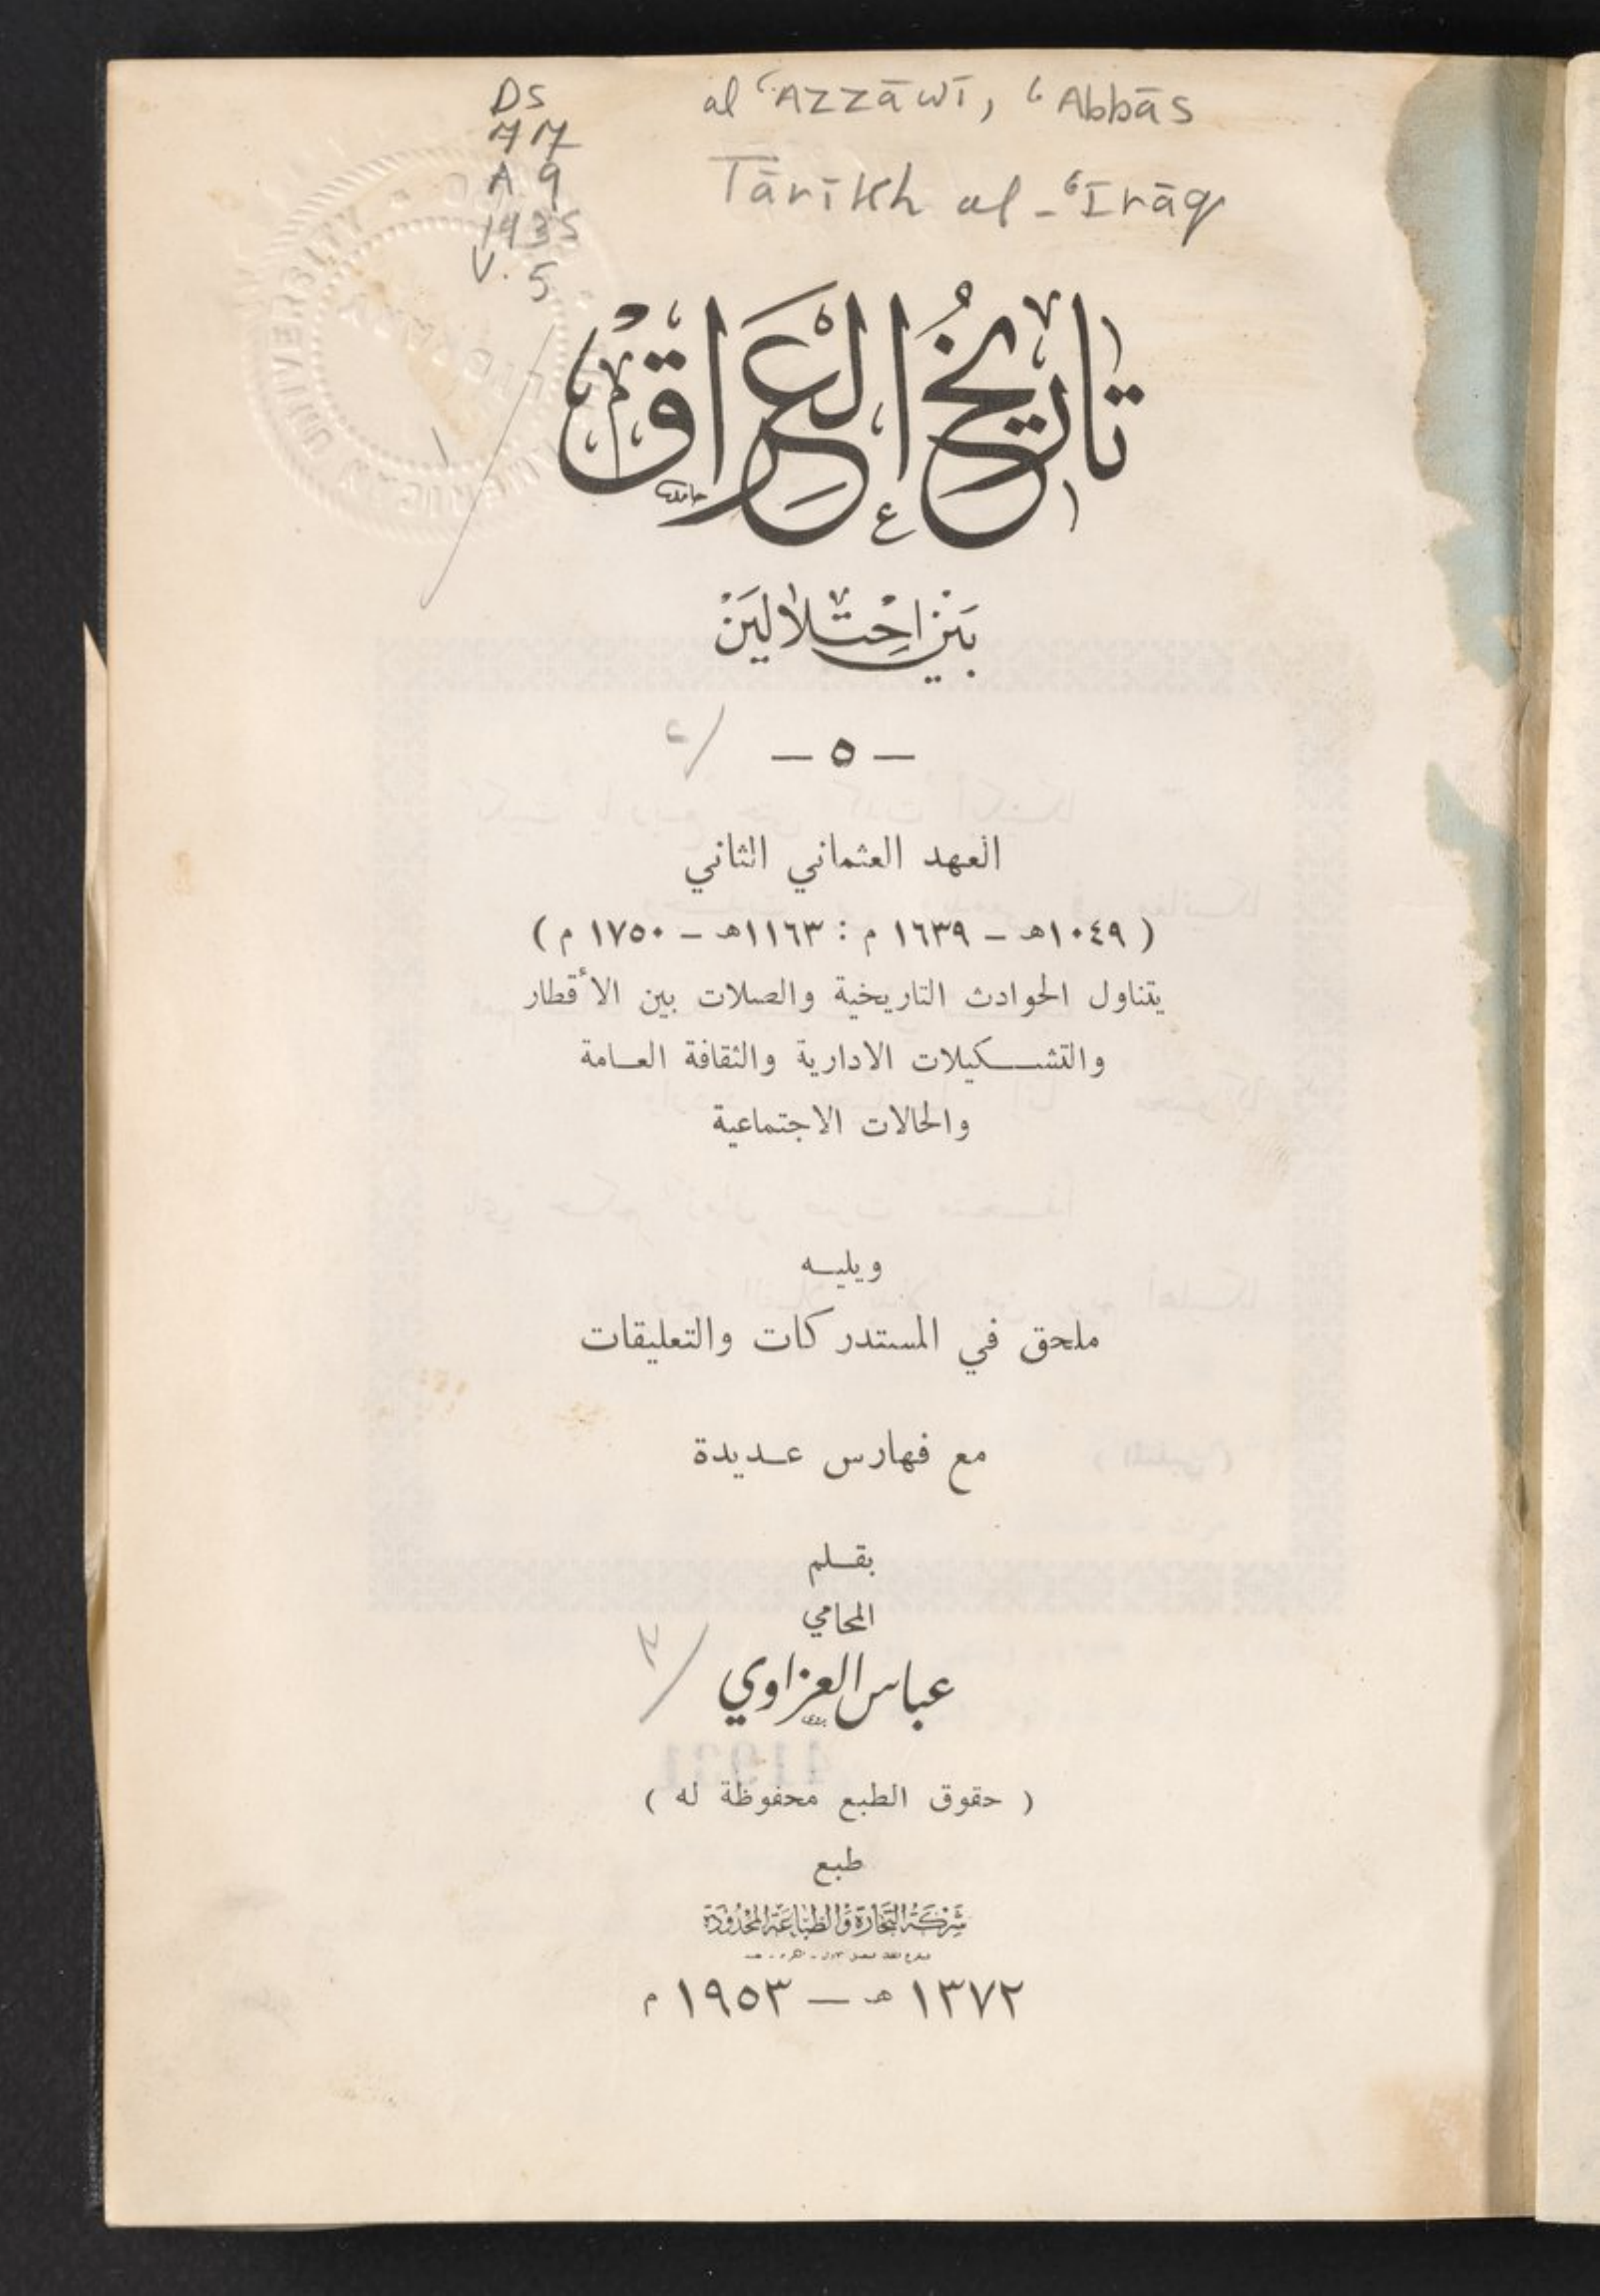 DS
77
A9
1935
V. 5
al ʿAzzāwī, ʿAbbās
Tārīkh al-ʿIrāq
تاريخُ الْعِرَاقْ
بَيْنَ احْتِلالَيْنْ
— ٥ —
٥/
العهد العثماني الثاني
( ١٠٤٩هـ – ١٦٣٩ م : ١١٦٣هـ – ١٧٥٠ م )
يتناول الحوادث التاريخية والصلات بين الأقطار
والتشـكيلات الادارية والثقافة العـامة
والحالات الاجتماعية
ويليـه
ملحق في المستدركات والتعليقات
مع فهارس عـديدة
بقـلم
المحامي
عباس العزاوي
( حقوق الطبع محفوظة له )
طبع
شركة التجارة والطباعة المحدودة
١٣٧٢ هـ – ١٩٥٣ م